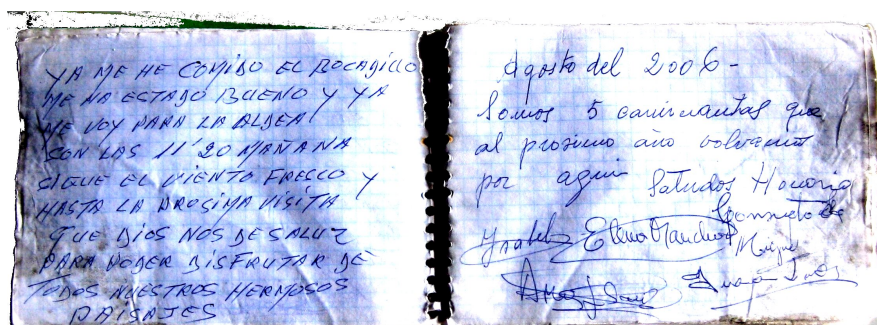 YA ME HE COMIDO EL BOCADILLO
ME HA ESTADO BUENO Y YA
ME VOY PARA LA ALDEA
SON LAS 11'20 MAÑANA
SIGUE EL VIENTO FRESCO Y
HASTA LA PROSIMA VISITA
QUE DIOS NOS DE SALUZ
PARA PODER DISFRUTAR DE
TODOS NUESTROS HERMOSOS
PAISAJES
Agosto del 2006 -
Somos 5 caminantas que
al prosimo año volveremos
por aqui Saludos Honorio
Ysabel Elena
Ana Juana Inés